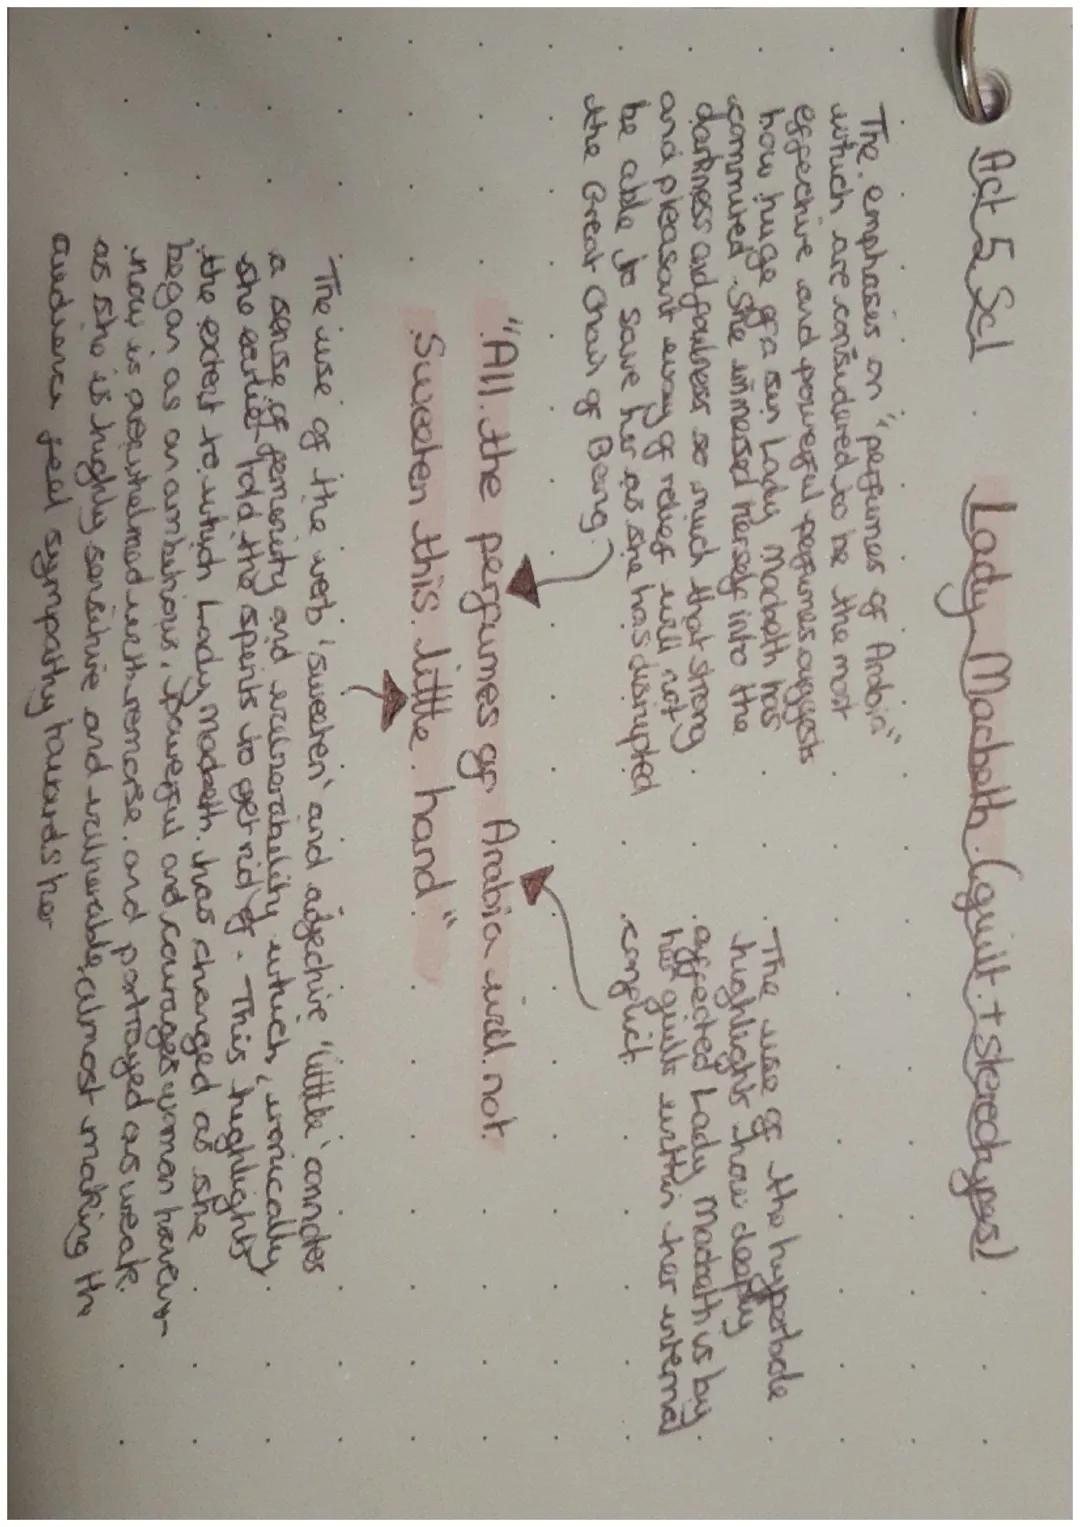 Act 5 Sc1 Lady Macbeth (guilt + stereotypes)
The emphases on "perfumes of Arabia"
which are considered to be the most
effective and powerful perfumes suggests
how huge of a sin Lady Macbeth has
commited. She immersed herself into the
darkness and foulness so much that strong
and pleasant away of relief will not
be able to save her as she has disrupted
the Great Chain of Being.
The use of the hyperbole
highlights how deeply
affected Lady Macbeth is by
her guilt within her internal
conflict.
"All the perfumes of Arabia will not
Sweeten this little hand"
The use of the verb 'sweeten' and adjective "little' connotes
a sense of feminity and vulnerability which, ironically,
she earlier told the spirits to get rid of. This highlights
the extent to which Lady Macbeth has changed as she
began as an ambitious, powerful and courages woman however
now is overwhelmed with remorse and portrayed as weak
as she is highly sensitive and vulnerable, almost making the
audience feel sympathy towards her